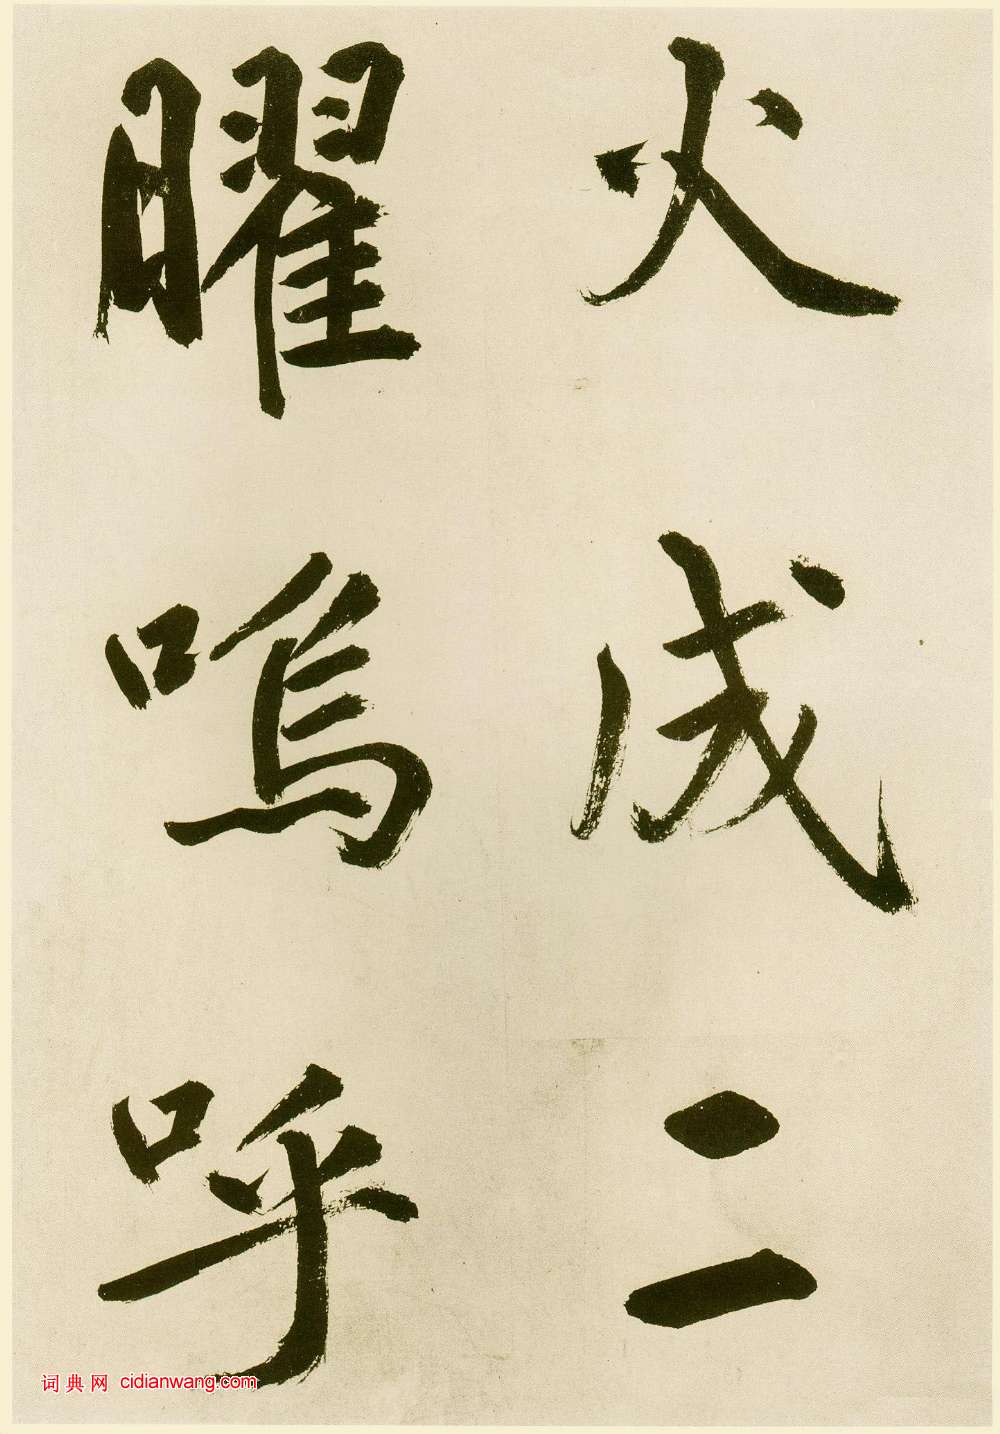 火成二
曜嗚呼
词典网 cidianwang.com